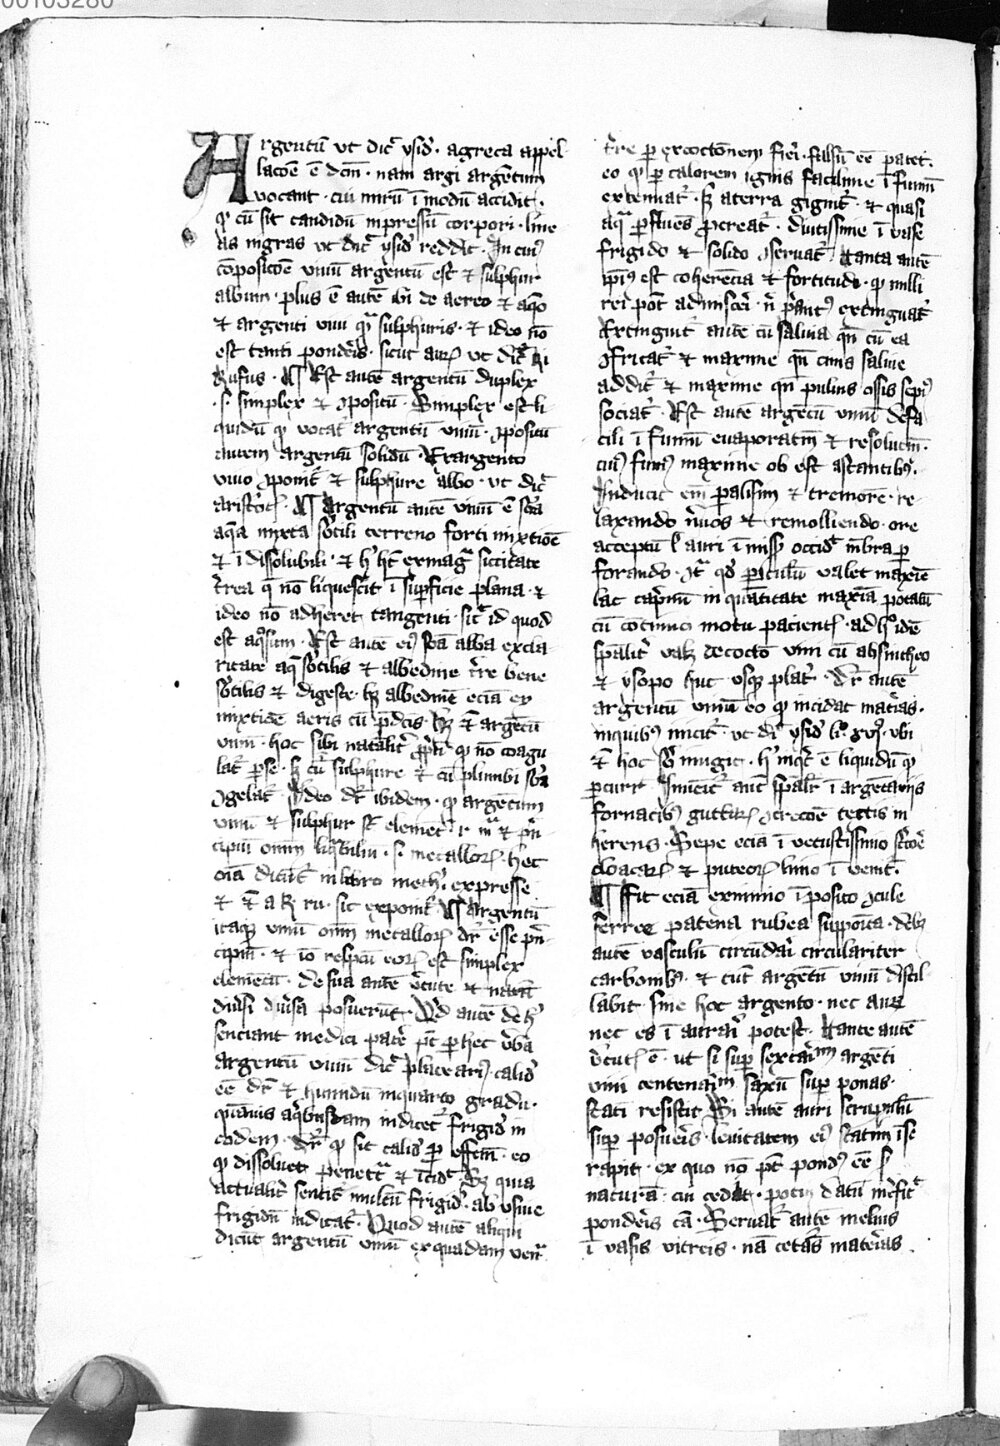 00103280
Argentū vt dic̄ ysid̛ · a greca appel
lac̄oe ē dc̄m · nam argi argētum
vocant · cui mirū ī modū accidit ·
q̛ cū sit candidū inpressū corpori · line
as nigras vt dic̄ ysid̛ reddit · In cui᷒
cōposic̄oe viuū argentū est et sulphur
album · plus ē autē ibi de aereo et aq̄o
et argenti viui q̄ᵃ sulphuris · et ideo nō
est tanti ponderis · sicut aurū vt dic̄
Rufus · Est autē argentū duplex
· s · simplex et ꝯpositū · Simplex est li
quidū q̛ vocat̛ argentū viuū · ꝯpositū
autem argentū solidū · Ex argento
viuo ꝯponit̛ et sulphure albo · vt dic̄
aristot̛ · Argentū autē viuū ē sb̄a
aq̄a mixta sb̄tili terreno forti mixtiōe
et ī dissolubili · et h̛ h̄t ex mag̛ siccitate
t̛rea q̄ nō liquescit ī sup̄ficie plana · et
ideo nō adheret tangenti · sic̛ id quod
est aq̄sum · Est autē ei᷒ sb̄a alba ex cla
ritate aq̄ sb̄tilis et albedine t̛re bene
sb̄tilis et digeste · hȝ albedinē eciā ex
mixtiōe aeris cū p̄dc̄is · Hȝ et̄ argētū
viuū · hoc sibi nat̄alit̛ ꝓp̄ū q̛ nō coagu
lat̛ ꝑ se · sȝ cū sulphure et cū plumbi sb̄a
ꝯgelat̛ · Ideo dr̄ ibidem · q̛ argētum
viuū et sulphur st̄ elemēt̄ · et p̄n
cipiū om̄m liq̄biliū · s · metalloꝝ · hec
oīa dicūt̛ in libro meth̛ · expresse
et sic exponit̛ Argentū
itaqȝ viuū om̄m metalloꝝ dr̄ esse p̄n
cipiū · et iō respc̄u eoꝝ est simplex
elemētū · de sua autē v̛tute et nat̄a
diưsi diưsa posuerūt · Qd̛ autē de h̛
senciant medici patꝫ ꝑ hec v̛ba
argentū viuū dic̄ plateari᷒ · calid̛
eē dr̄ et humidū in quarto gradu ·
quāuis a q̄busdam indicet̛ frigid̛ in
eodem · dr̄ q̛ sit calid̛ ꝑ effc̄m · eo
q̛ dissoluet penetᵃt et īcid̛t · Sȝ quia
actualit̛ sentit̛ multū frigid̛ · ab vsu
frigidū indicat̛ · Quod autē aliqui
dicūt argentū viuū ex quadam ven̛
t̛re ꝑ excoctōnem fieri · falsū eē patet ·
eo q̛ ꝑ calorem ignis facilime ī fumū
extenuat̛ · sȝ a terra gignit̛ · et quasi
aq̄ ꝑfluēs ꝓcreat̛ · Diutissime ī vase
frigido et solido ꝯseruat̛ · tanta autē
ip̄i᷒ est coherēcia et fortitudo · q̛ nulli
rei pōt admisceri · n̄ p̄ant᷒ extinguat̛
Extinguit̛ autē cū saliua qn̄ cū ea
ꝯfricat̛ et maxime qn̄ cinis saluie
addit̛ et maxime qn̄ puluis ossis sepi᷒
sociat̛ · Est autē argētū viuū de fa
cili ī fumū euaporatm̄ et resolutm̄ ·
cui᷒ fum᷒ maxime ob est astantib᷒ ·
Inducit em̄ ꝑalisim et tremorē · re
laxando n̛uos et remolliendo · ore
acceptū l̛ auri ī missū occid̛t mēbra ꝑ
forando · ꝯt̛ q̛d ꝑiculū valet maxīe
lac cap̄nū in quātitate maxīa potatū
cū cōtinuo motu pacientꝭ · ad h̛ idē
sp̄alit̛ valȝ decoctō vini cū absintheo
et ysopo · huc vsqȝ plat̛ · Dr̄ autē
argentū viuū eo q̛ incidat mat̛ias ·
in quib᷒ inicit̛ · vt di ysid̛ li° xvi° · vbi
et̄ hoc sb̄iungit · h̛ inq̛t ē liquidū q̛
ꝑcurrit · Inuēit̛ autē sp̄alit̛ ī argētariis
fornacib᷒ guttaꝝ ꝯcrec̄oe tectis in
herens · Sepe eciā ī vetustissimo st̛coē
cloacaꝝ et puteoꝝ limo ī venit̛ ·
Fit eciā ex minio ī posito ꝯcule
ferree patena rubea supposita · deb
autē vasculū circūdari circulariter
carbonib᷒ · et tūc argētū viuū distil
labit · sine hoc argento · nec aurū
nec es ī aurari potest · tante autē
v̛tut̛ ē · vt si sup̄ sextariūm argēti
viui centenariūm saxū sup̄ ponas ·
stati resistit Si autē auri scrupulū
sup̄ posueris · leuitatem ei᷒ statim ī se
rapit · ex quo nō pt̄ pond᷒ eē s
naturā · cui cedat · poti᷒ datū īt̛fic̛
ponderis cā · Seruat̛ autē melius
ī vasis vitreis · nā cetas materias ·